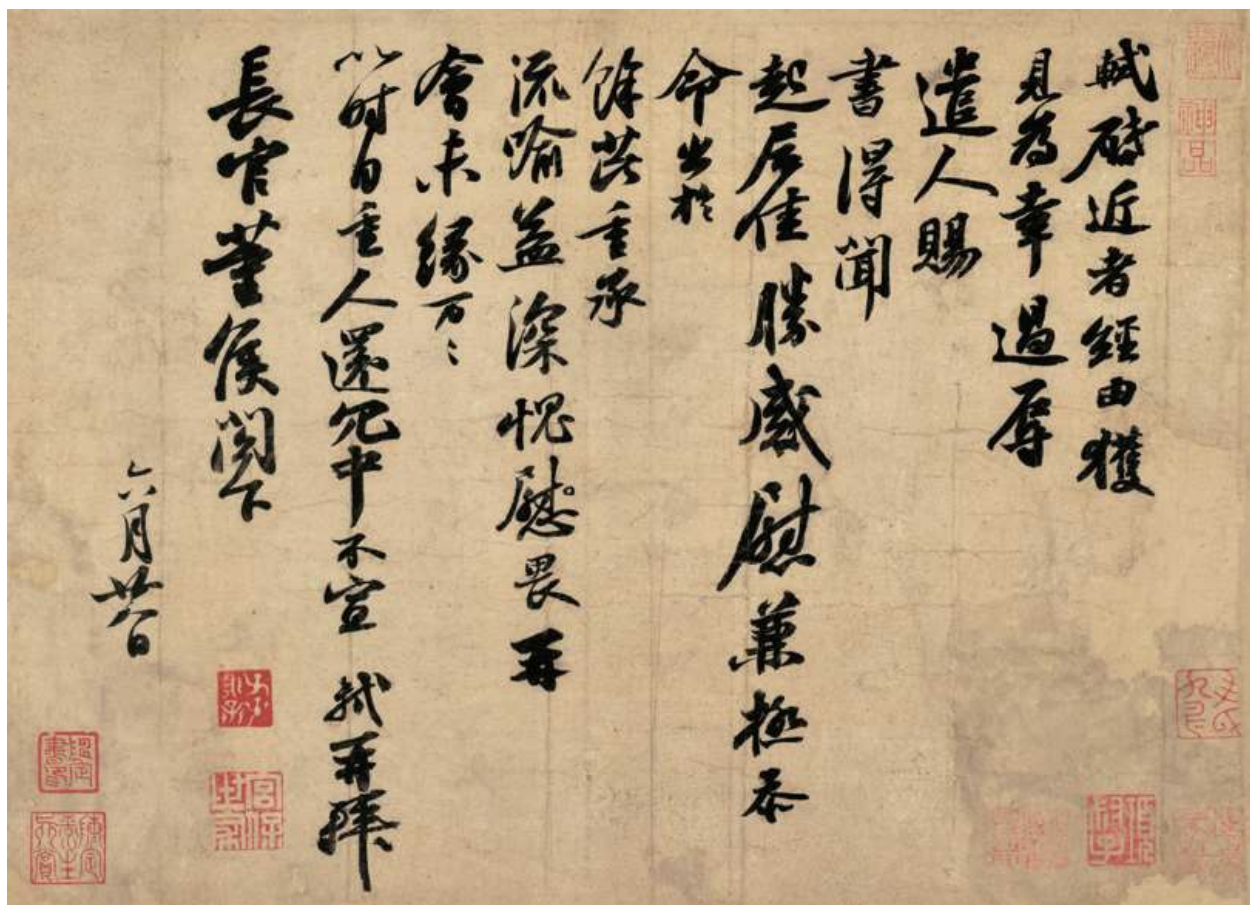 軾啟近者經由獲
見為幸過辱
遣人賜
書得聞
起居佳勝感慰兼極忝
命出於
餘芘重承
流喻益深愧慰畏再
會未緣万〻
以時自重人還冗中不宣 軾再拜
長官董侯閣下
六月廿八日
神品
宮保世家